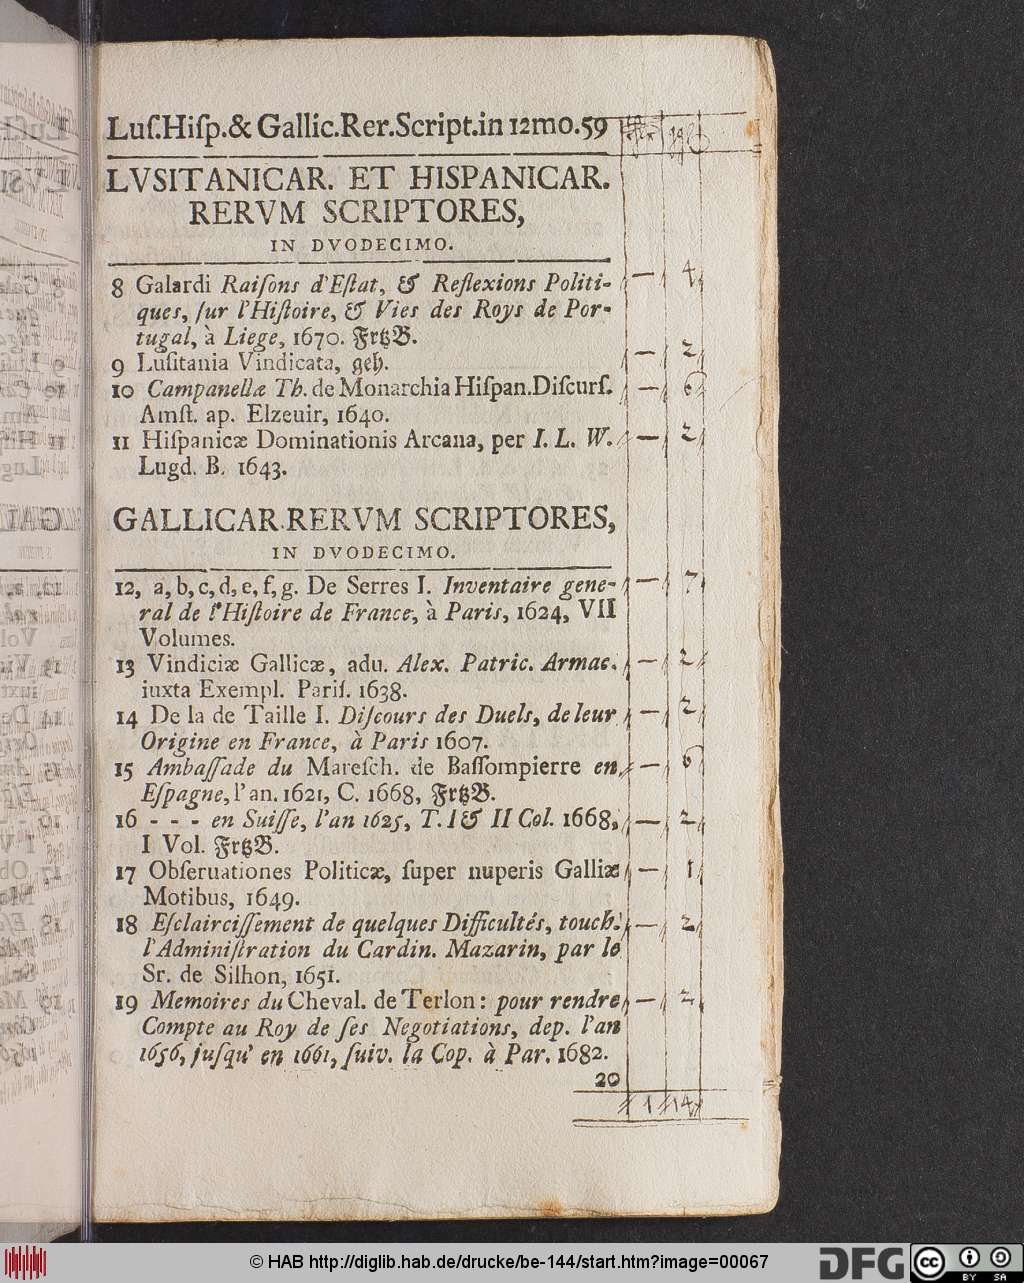 Luſ.Hiſp.& Gallic.Rer.Script.in 12mo.59
LVSITANICAR. ET HISPANICAR.
RERVM SCRIPTORES,
IN DVODECIMO.
8 Galardi Raiſons d'Eſtat, & Reflexions Politi- — 4
ques, ſur l'Hiſtoire, & Vies des Roys de Por-
tugal, à Liege, 1670. FrtzB.
9 Luſitania Vindicata, geh. — 2
10 Campanellæ Th. de Monarchia Hiſpan.Diſcurſ. — 6
Amſt. ap. Elzeuir, 1640.
11 Hiſpanicæ Dominationis Arcana, per I. L. W. — 2
Lugd. B. 1643.
GALLICAR.RERVM SCRIPTORES,
IN DVODECIMO.
12, a, b, c, d, e, f, g. De Serres I. Inventaire gene- — 7
ral de l'Hiſtoire de France, à Paris, 1624, VII
Volumes.
13 Vindiciæ Gallicæ, adu. Alex. Patric. Armac. — 2
iuxta Exempl. Pariſ. 1638.
14 De la de Taille I. Diſcours des Duels, de leur — 2
Origine en France, à Paris 1607.
15 Ambaſſade du Mareſch. de Baſſompierre en — 6
Eſpagne, l'an. 1621, C. 1668, FrtzB.
16 - - - en Suiſſe, l'an 1625, T. I & II Col. 1668, — 2
I Vol. FrtzB.
17 Obſeruationes Politicæ, ſuper nuperis Galliæ — 1
Motibus, 1649.
18 Eſclairciſſement de quelques Difficultés, touch. — 2
l'Adminiſtration du Cardin. Mazarin, par le
Sr. de Silhon, 1651.
19 Memoires du Cheval. de Terlon: pour rendre — 2
Compte au Roy de ſes Negotiations, dep. l'an
1656, juſqu' en 1661, ſuiv. la Cop. à Par. 1682.
20
1 14
© HAB http://diglib.hab.de/drucke/be-144/start.htm?image=00067
DFG
cc
BY SA